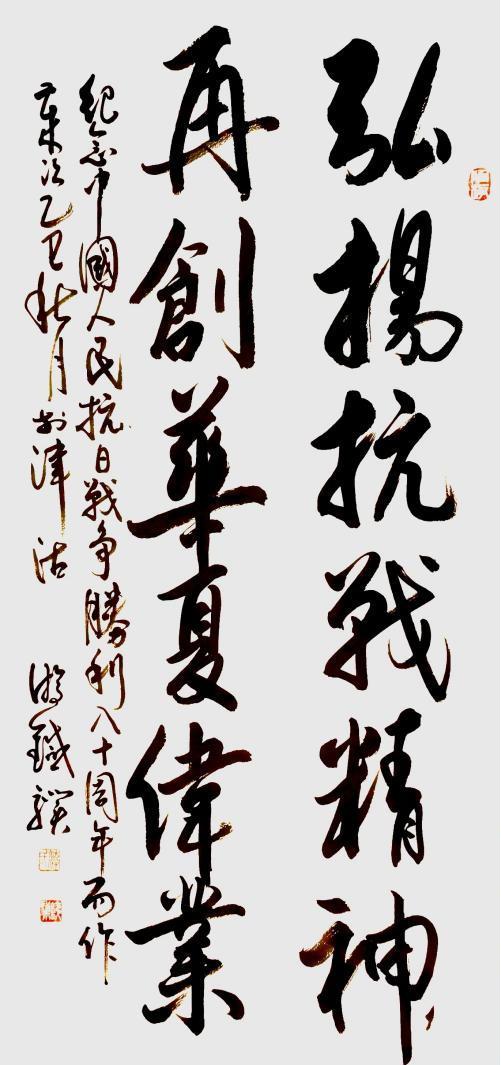 弘揚抗战精神
再創華夏偉業
紀念中國人民抗日戰争勝利八十周年而作
歲次乙巳秋月於津沽 游鐵